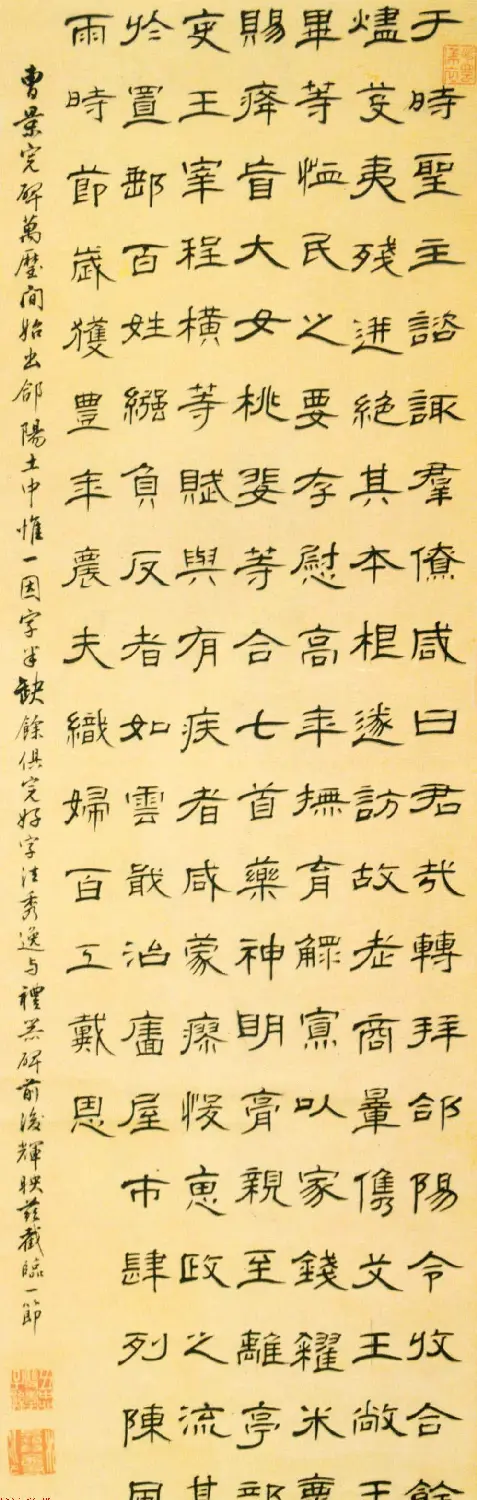 于時聖主諮諏羣僚咸曰君哉轉拜郃陽令收合餘
燼芟夷殘迸絕其本根遂訪故老商暈儁艾王敞王
畢等恤民之要存慰高年撫育鰥寡以家錢糴米粟
賜癃盲大女桃婓等合七首藥神明膏親至離亭部
吏王宰程橫等賦與有疾者咸蒙瘳悛惠政之流甚
於置郵百姓繦負反者如雲戢治廧屋市肆列陳風
雨時節歲獲豊年農夫織婦百工戴恩
曹景完碑萬歷間始出郃陽土中惟一因字半缺餘俱完好字法秀逸与禮器碑前後輝映茲截臨一節